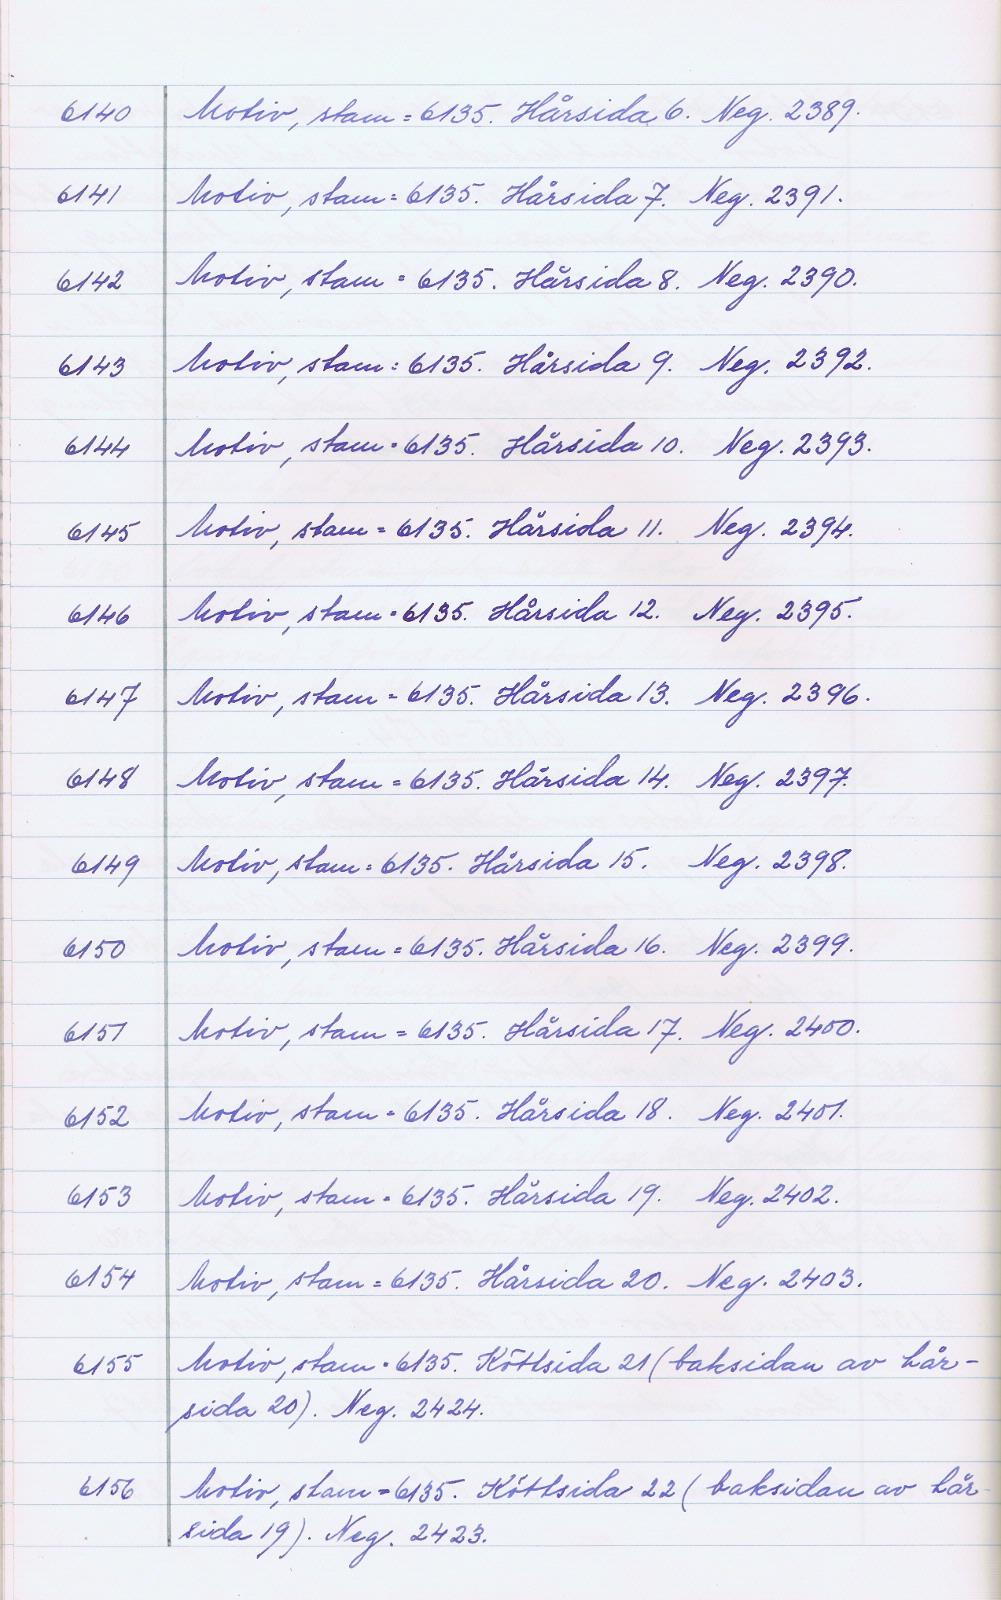 6140 Motiv, stam = 6135. Hårsida 6. Neg. 2389.
6141 Motiv, stam = 6135. Hårsida 7. Neg. 2391.
6142 Motiv, stam = 6135. Hårsida 8. Neg. 2390.
6143 Motiv, stam = 6135. Hårsida 9. Neg. 2392.
6144 Motiv, stam = 6135. Hårsida 10. Neg. 2393.
6145 Motiv, stam = 6135. Hårsida 11. Neg. 2394.
6146 Motiv, stam = 6135. Hårsida 12. Neg. 2395.
6147 Motiv, stam = 6135. Hårsida 13. Neg. 2396.
6148 Motiv, stam = 6135. Hårsida 14. Neg. 2397.
6149 Motiv, stam = 6135. Hårsida 15. Neg. 2398.
6150 Motiv, stam = 6135. Hårsida 16. Neg. 2399.
6151 Motiv, stam = 6135. Hårsida 17. Neg. 2400.
6152 Motiv, stam = 6135. Hårsida 18. Neg. 2401.
6153 Motiv, stam = 6135. Hårsida 19. Neg. 2402.
6154 Motiv, stam = 6135. Hårsida 20. Neg. 2403.
6155 Motiv, stam = 6135. Köttsida 21 (baksidan av hår-
sida 20). Neg. 2424.
6156 Motiv, stam = 6135. Köttsida 22 (baksidan av hår-
sida 19). Neg. 2423.